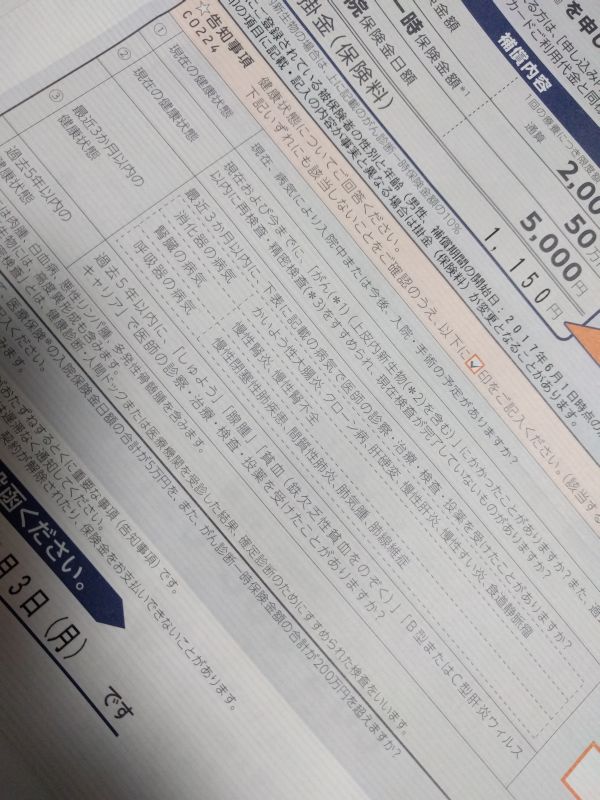 金額
補償内容
1回の療養につき限度額
通算
一時保険金額
保険金日額
掛金(保険料)
2,00
50万
5,000円
1,150円
新生物の場合は、上に記載のがん診断一時保険金額の10%
にご登録されている被保険者の性別と年齢(男性、補償期間の開始日:2017年6月1日時点の
の項目に記載・記入の内容が事実と異なる場合は掛金(保険料)が変更となることがあります。
☆告知事項
C0224
健康状態についてご回答ください。
下記いずれにも該当しないことをご確認のうえ、以下に✓印をご記入ください。(該当する
① 現在の健康状態
現在、病気により入院中または今後、入院・手術の予定がありますか?
② 現在の健康状態
現在および今までに、「がん(*1)(上皮内新生物(*2)を含む)」にかかったことがありますか?また、過
以内に再検査・精密検査(*3)をすすめられ、現在検査が完了していないものがありますか?
③ 最近3か月以内の
健康状態
最近3か月以内に、下表に記載の病気で医師の診察・治療・検査・投薬を受けたことがありますか?
消化器の病気
かいよう性大腸炎、クローン病、肝硬変、慢性肝炎、慢性すい炎、食道静脈瘤
腎臓の病気
慢性腎炎、慢性腎不全
呼吸器の病気
慢性閉塞性肺疾患、間質性肺炎、肺気腫、肺線維症
過去5年以内の
健康状態
過去5年以内に、「しゅよう」「腺腫」「貧血(鉄欠乏性貧血をのぞく)」「B型またはC型肝炎ウィルス
キャリア」で医師の診察・治療・検査・投薬を受けたことがありますか?
は肉腫、白血病、悪性リンパ腫、多発性骨髄腫を含みます。
高度異形成も含みます。
健康診断・人間ドックまたは医療機関を受診した結果、確定診断のためにすすめられた検査をいいます。
医療保険*の入院保険金日額の合計が5万円を、また、がん診断一時保険金額の合計が200万円を超えますか?
入ください。
がおたずねするとくに重要な事項(告知事項)です。
遅滞なく通知してください。
契約が解除されたり、保険金をお支払いできないことがあります。
函ください。
月3日(月)です